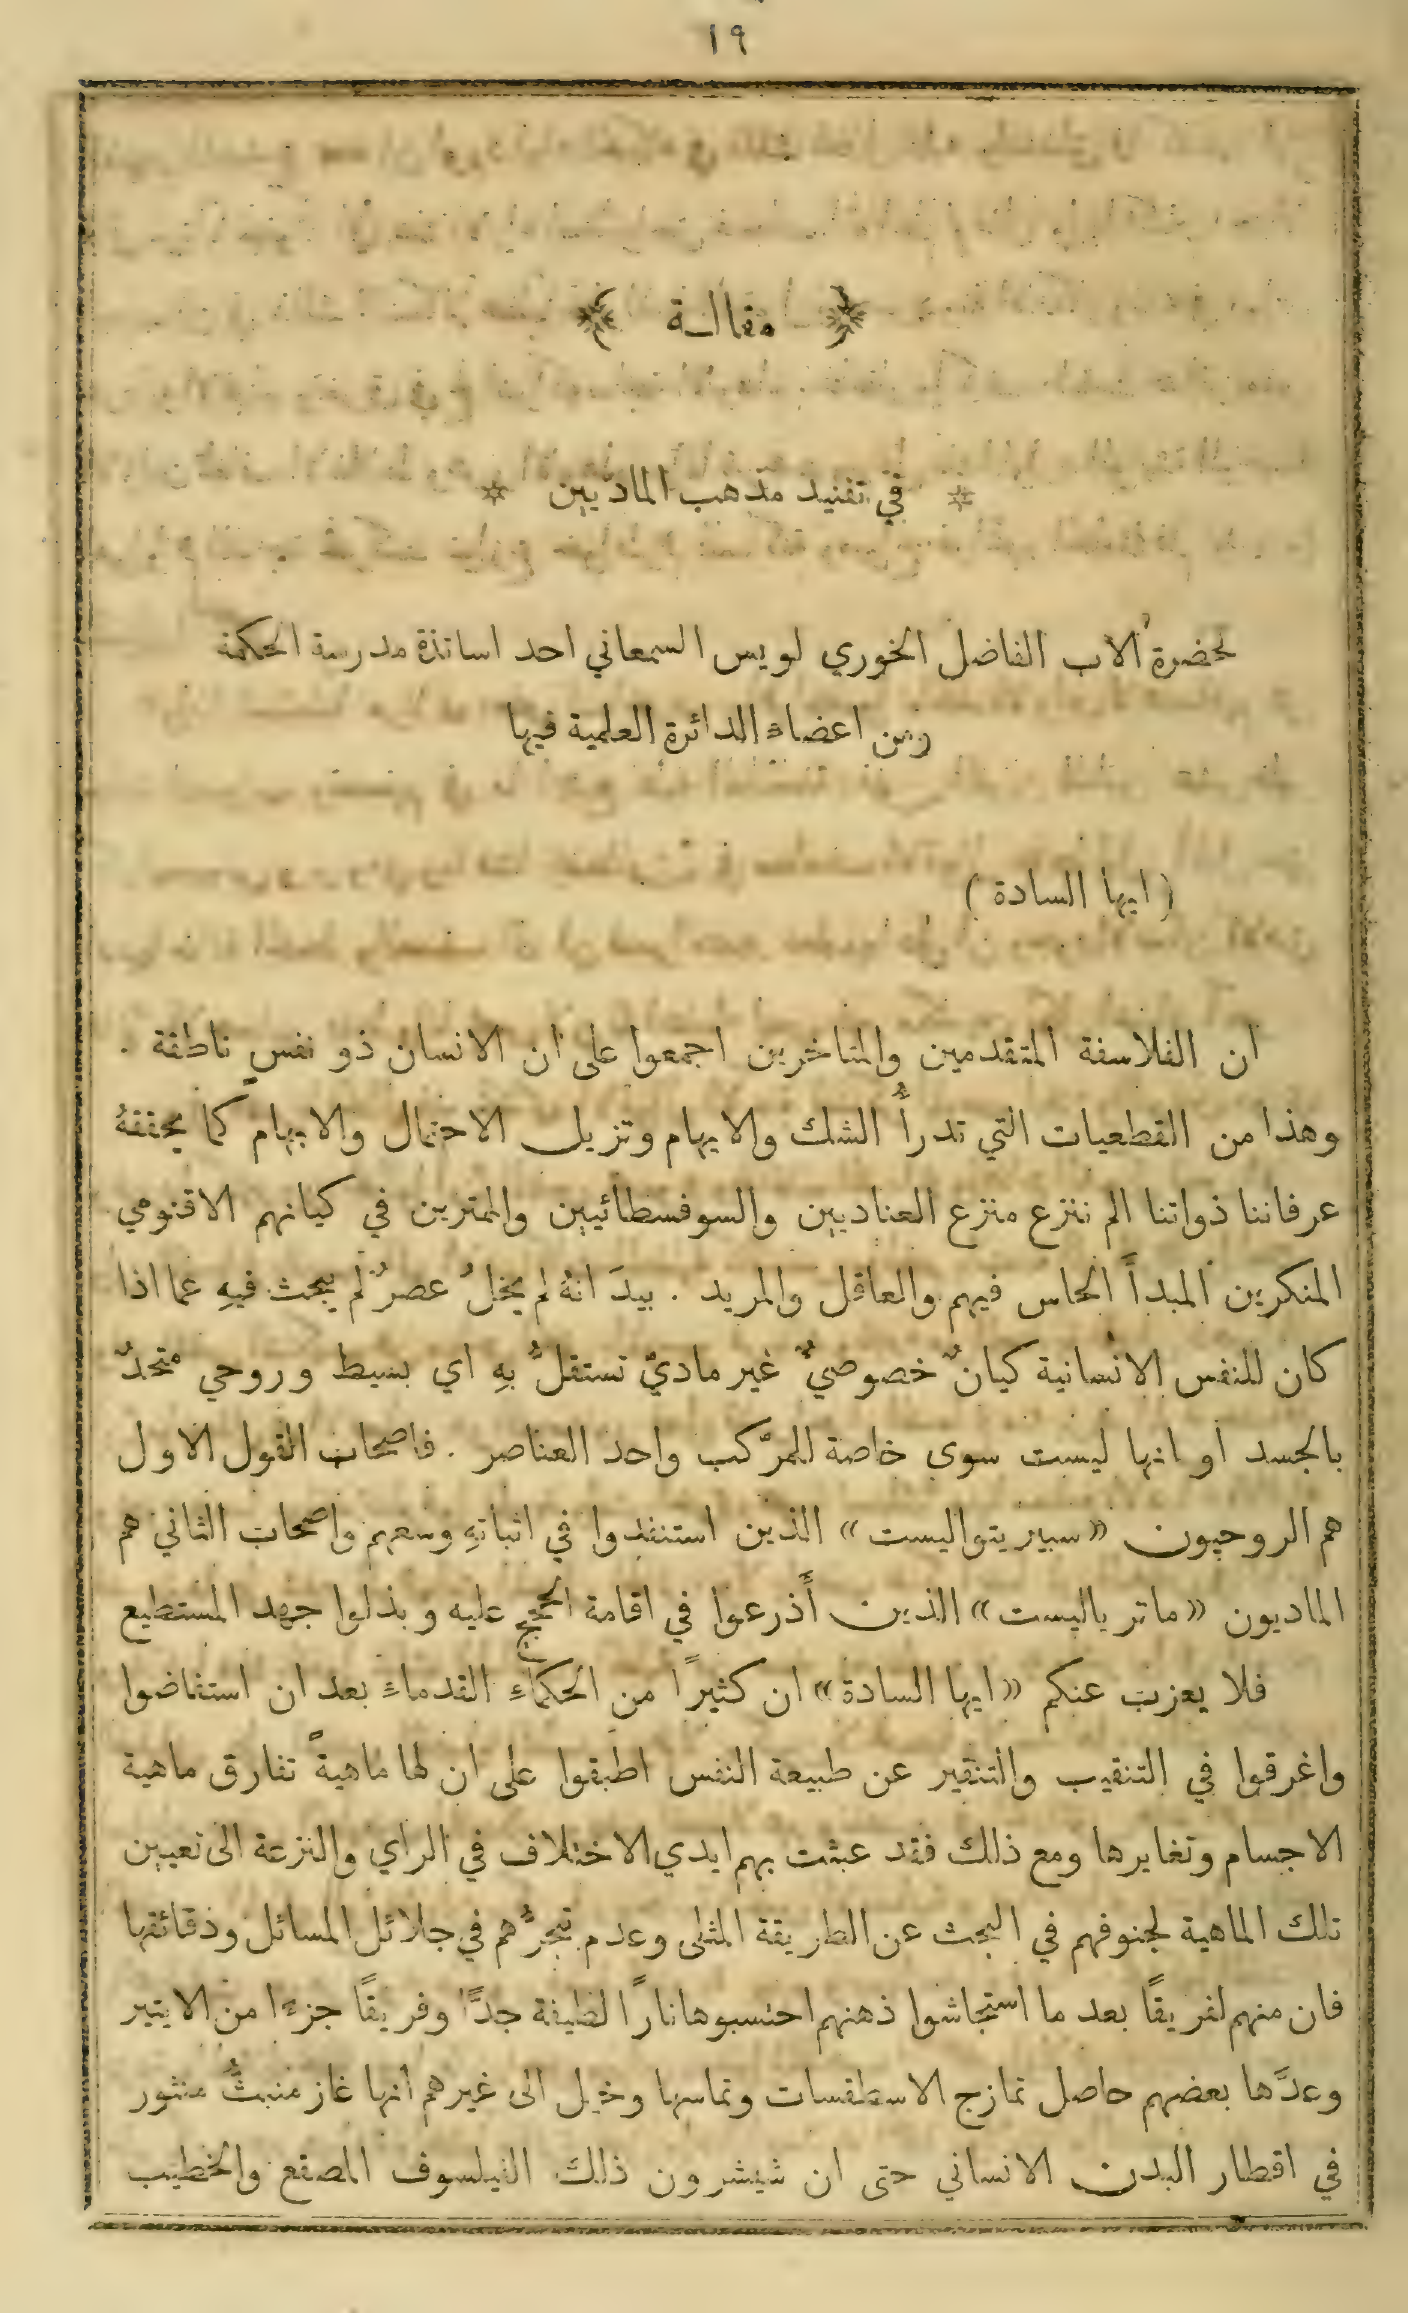 ١٩
مقالة
في تفنيد مذهب الماديين
لحضرة الاب الفاضل الخوري لويس السمعاني احد اساتذة مدرسة الحكمة
ومن اعضاء الدائرة العلمية فيها
( ايها السادة )
ان الفلاسفة المتقدمين والمتاخرين اجمعوا على ان الانسان ذو نفسٍ ناطقة .
وهذا من القطعيات التي تدرأُ الشك والايهام وتزيل الاحتمال والابهام كما يحققهُ
عرفاننا ذواتنا الم ننزع منزع العناديين والسوفسطائيين والممترين في كيانهم الاقنومي
المنكرين المبدأَ الحاس فيهم والعاقل والمريد . بيدَ انهُ لم يخلُ عصرٌ لم يبحث فيهِ عما اذا
كان للنفس الانسانية كيانٌ خصوصيٌّ غير ماديٍّ تستقلُّ بهِ اي بسيط وروحي متحدٌ
بالجسد او انها ليست سوى خاصة للمركَّب واحد العناصر . فاصحاب القول الاول
هم الروحيون «سبيريتواليست» الذين استنفدوا في اثباتهِ وسعهم واصحاب الثاني هم
الماديون «ماترياليست» الذين أَذرعوا في اقامة الحجج عليه وبذلوا جهد المستطيع
فلا يعزب عنكم «ايها السادة» ان كثيرًا من الحكماءِ القدماءِ بعد ان استفاضوا
واغرقوا في التنقيب والتنقير عن طبيعة النفس اطبقوا على ان لها ماهيةً تفارق ماهية
الاجسام وتغايرها ومع ذلك فقد عبثت بهم ايدي الاختلاف في الراي والنزعة الى تعيين
تلك الماهية لجنوفهم في البحث عن الطريقة المثلى وعدم تبحرُّهم في جلائل المسائل ودقائقها
فان منهم لفريقًا بعد ما استجاشوا ذهنهم احتسبوها نارًا لطيفة جدًّا وفريقًا جزءًا من الايتير
وعدَّها بعضهم حاصل تمازج الاسطقسات وتماسها وخيل الى غيرهم انها غاز منبثٌّ منثور
في اقطار البدن الانساني حتى ان شيشرون ذلك الفيلسوف المصقع والخطيب